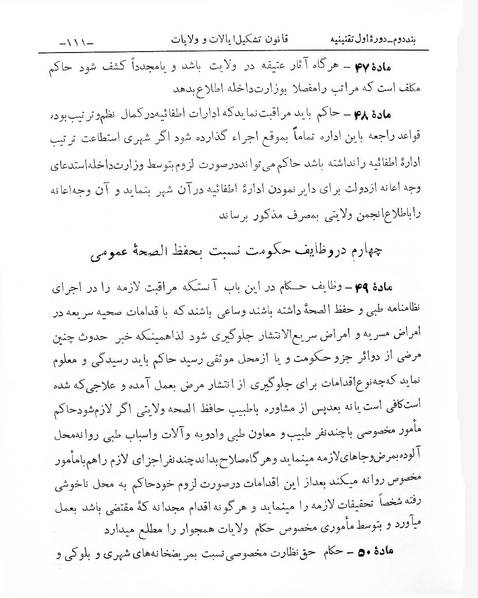 بند دوم ـ دورهٔ اول تقنینیه قانون تشکیل ایالات و ولایات ـ۱۱۱ـ
مادهٔ ۴۷ ـ هرگاه آثار عتیقه در ولایت باشد و یا مجدداً کشف شود حاکم
مکلف است که مراتب را مفصلا بوزارت داخله اطلاع بدهد
مادهٔ ۴۸ ـ حاکم باید مراقبت نماید که ادارات اطفائیه در کمال نظم و ترتیب بوده
قواعد راجعه باین اداره تماماً بموقع اجراء گذارده شود اگر شهری استطاعت ترتیب
ادارهٔ اطفائیه را نداشته باشد حاکم می‌تواند در صورت لزوم بتوسط وزارت داخله استدعای
وجه اعانه از دولت برای دایر نمودن ادارهٔ اطفائیه در آن شهر بنماید و آن وجه اعانه
را باطلاع انجمن ولایتی بمصرف مذکور برساند
چهارم در وظایف حکومت نسبت بحفظ الصحهٔ عمومی
مادهٔ ۴۹ ـ وظایف حکام در این باب آنستکه مراقبت لازمه را در اجرای
نظامنامه طبی و حفظ الصحهٔ داشته باشند و ساعی باشند که با قدامات صحیه سریعه در
امراض مسریه و امراض سریع‌الانتشار جلوگیری شود لذا همینکه خبر حدوث چنین
مرضی از دوائر جزو حکومت و یا از محل موثقی رسید حاکم باید رسیدگی و معلوم
نماید که چه نوع اقدامات برای جلوگیری از انتشار مرض بعمل آمده و علاجی که شده
است کافی است یا نه بعد پس از مشاوره با طبیب حافظ الصحه ولایتی اگر لازم شود حاکم
مأمور مخصوصی با چند نفر طبیب و معاون طبی و ادویه و آلات و اسباب طبی روانه محل
آلوده بمرض و جاهای لازمه مینماید و هرگاه صلاح بداند چند نفر اجزای لازم را هم با مأمور
مخصوص روانه میکند بعد از این اقدامات در صورت لزوم خود حاکم به محل ناخوشی
رفته شخصاً تحقیقات لازمه را مینماید و هرگونه اقدام مجدانه که مقتضی باشد بعمل
میآورد و بتوسط مأموری مخصوص حکام ولایات همجوار را مطلع میدارد
مادهٔ ۵۰ ـ حکام حق نظارت مخصوصی نسبت بمریضخانه‌های شهری و بلوکی و